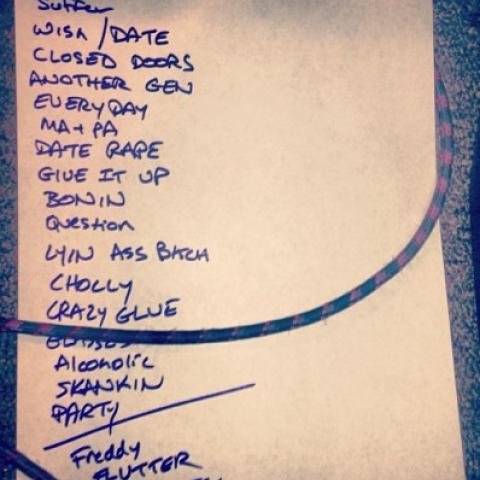 Suffer
WISH / DATE
CLOSED DOORS
ANOTHER GEN
EVERYDAY
MA + PA
DATE RAPE
GIVE IT UP
BONIN
Question
LYIN ASS BITCH
CHOLLY
CRAZY GLUE
Alcoholic
SKANKIN
PARTY
Freddy
FLUTTER